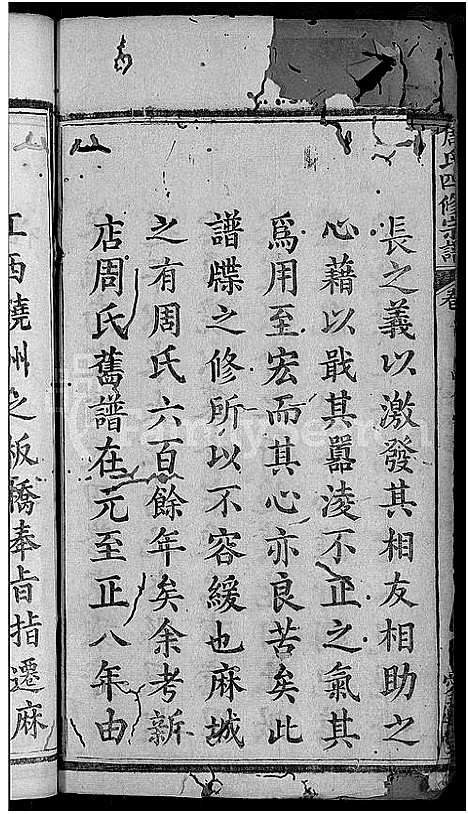 周氏四修宗譜
卷
長之義以激發其相友相助之
心藉以戢其囂淩不正之氣其
爲用至宏而其心亦良苦矣此
譜牒之修所以不容緩也麻城
之有周氏六百餘年矣余考新
店周氏舊譜在元至正八年由
江西饒州之板橋奉旨指遷麻